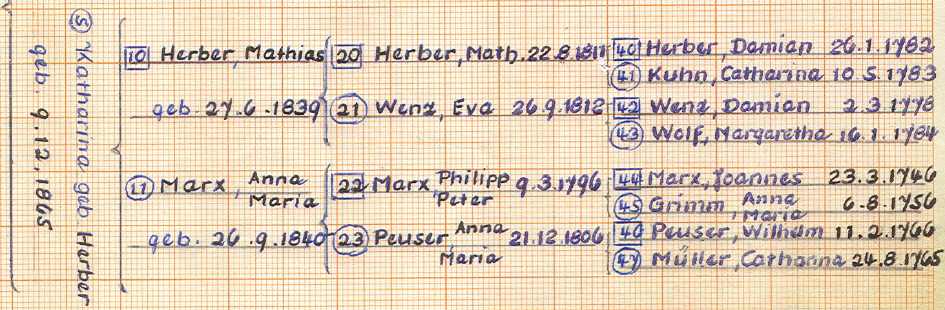 ⑤ Katharina geb Herber
geb. 9.12.1865
10 Herber, Mathias
geb. 27.6.1839
11 Marx, Anna Maria
geb. 26.9.1840
20 Herber, Math. 22.8.1811
21 Wenz, Eva 26.9.1812
22 Marx, Philipp Peter 9.3.1796
23 Peuser, Anna Maria 21.12.1806
40 Herber, Damian 26.1.1782
41 Kuhn, Catharina 10.5.1783
42 Wenz, Damian 2.3.1778
43 Wolf, Margaretha 16.1.1784
44 Marx, Joannes 23.3.1746
45 Grimm, Anna Maria 6.8.1756
46 Peuser, Wilhelm 11.2.1766
47 Müller, Catharina 24.8.1765